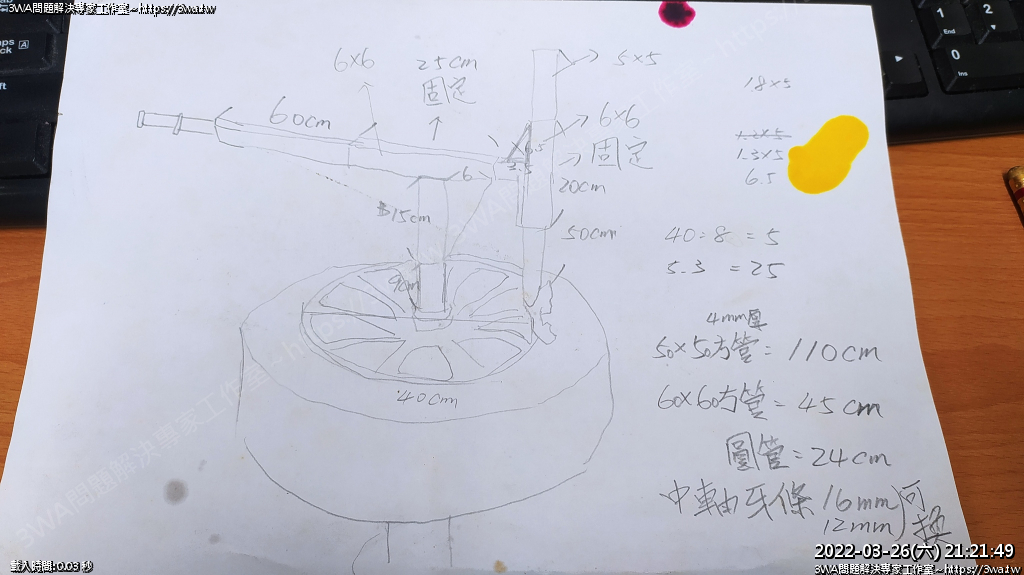 3WA問題解決專家工作室~https://3wa.tw
6×6
25cm
固定
5×5
60cm
6×6
固定
6.5
3.5
6
20cm
15cm
50cm
9cm
40cm
18×5
1.3×5
6.5
40÷8=5
5.3=25
4mm厚
50×50方管=110cm
60×60方管=45cm
圓管=24cm
中軸牙條16mm
12mm
可換
2022-03-26(六) 21:21:49
載入時間:0.03 秒
3WA問題解決專家工作室~https://3wa.tw